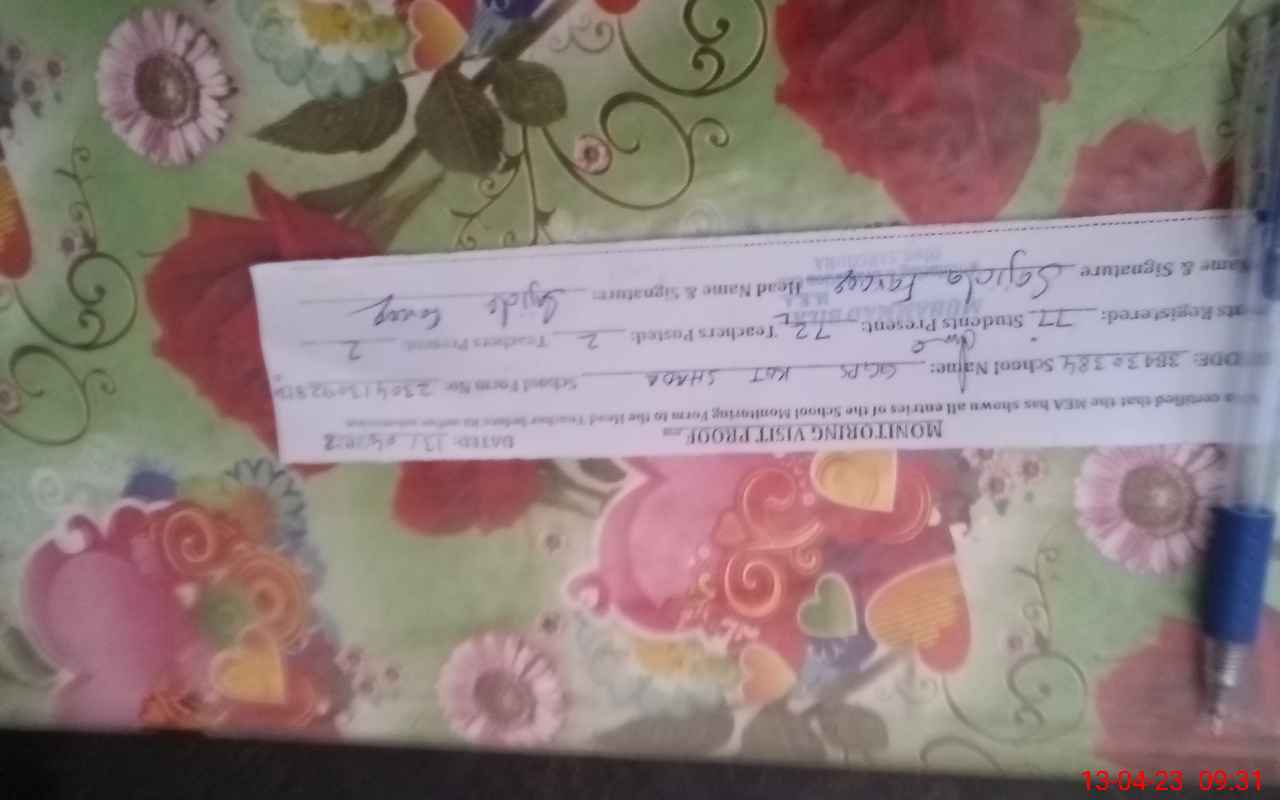 MONITORING VISIT PROOF
DATED: 13 / 04 /
certified that the MEA has shown all entries of the School Monitoring Form to the Head Teacher before its
DDE: 38430384 School Name: GGPS KOT SHADA School Form No:
Registered: 77 Students Present: 72 Teachers Posted: 2 Teachers Present: 2
Name & Signature Sajida Head Name & Signature:
MUHAMMAD BILAL
M.E.A
13-04-23 09:31